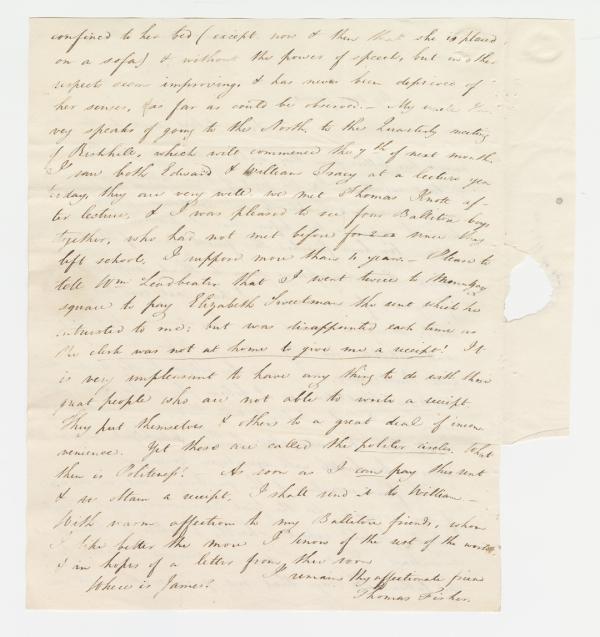 confined to her bed (except now & then that she is placed
on a sofa) & without the power of speech, but in other
respects seems improving, & has never been deprived of
her senses, as far as could be observed. – My uncle
vey speaks of going to the North, to the Quarterly meeting
of Richhill, which will commence the 7th of next month.
I saw both Edward & William Tracy at a lecture yes
terday, they are very well we met Thomas Knott af
ter lecture, & I was pleased to see four Ballitore boys
together, who had not met before since they
left school, I suppose more than 10 years. – Please to
tell Wm Leadbeater that I went twice to Mountjoy
square to pay Elizabeth Sweetman the rent which he
intrusted to me; but was disappointed each time as
the clerk was not at home to give me a receipt! It
is very unpleasant to have any thing to do with these
great people who are not able to write a receipt
They put themselves & others to a great deal of incon
venience. Yet these are called the politer circles. What
then is Politeness? As soon as I can pay this rent
& so obtain a receipt, I shall send it to William –
With warm affection to my Ballitore friends, whom
I like better the more I know of the rest of the world,
& in hopes of a letter from thee soon
I remain thy affectionate friend
Where is James?
Thomas Fisher.